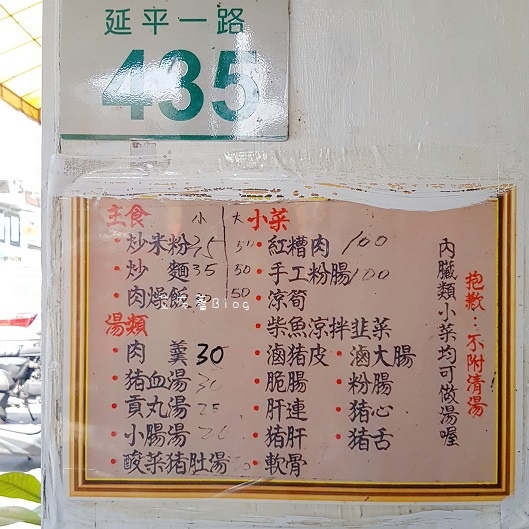 延平一路
435
主食 小 大
炒米粉 50
炒麵 35 50
肉燥飯 50
湯類
肉羹 30
豬血湯 30
貢丸湯 25
小腸湯
酸菜豬肚湯
小菜
紅糟肉 100
手工粉腸 100
涼筍
柴魚涼拌韭菜
滷豬皮 滷大腸
脆腸 粉腸
肝連 豬心
豬肝 豬舌
軟骨
內臟類小菜均可做湯喔
抱歉:不附清湯
Blog